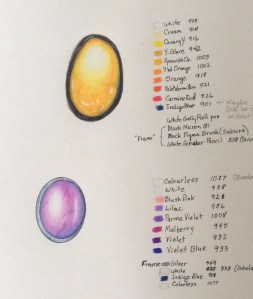 White 938
Cream 914
Canary Y 916
Y. Ochre 942
Spanish O. 1003
Ylw'd Orange 1002
Orange 918
Pale Vermilion 921
Carmine Red 926
Indigo Blue 901 ← Maybe
White Gelly Roll pen
"Frame" Black Micron 01
Black Pigma Brush (Sakura)
White Pencil
Colourless 1077
White 938
Blush Pink 928
Lilac 956
Parma Violet 1008
Mulberry 995
Violet 932
Violet Blue 933
Frame Silver 949
White 938
Indigo Blue 901
Colorless 1077